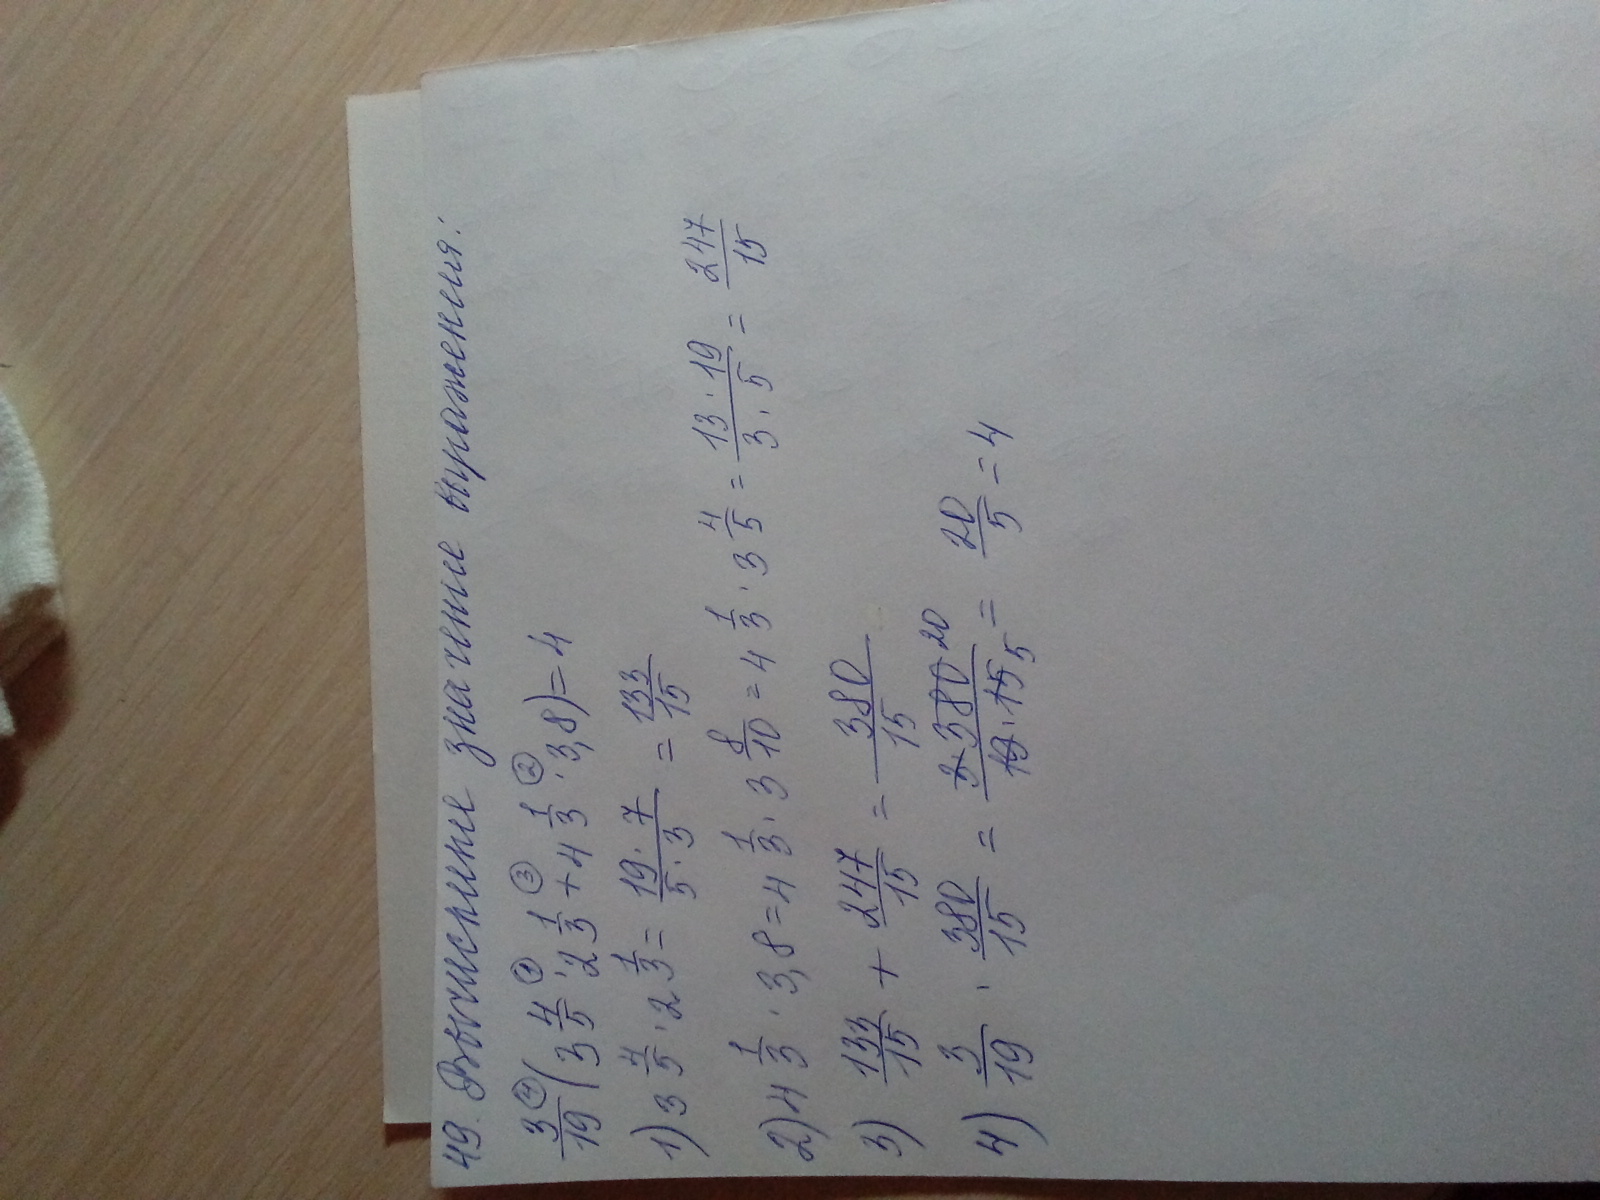 49. Вычисление значение выражения:
3/19 ④ (3 4/5 ①· 2 1/3 ③+ 4 1/3 ②· 3,8) = 4
1) 3 4/5 · 2 1/3 = 19 · 7 / 5 · 3 = 133/15
2) 4 1/3 · 3,8 = 4 1/3 · 3 8/10 = 4 1/3 · 3 4/5 = 13 · 19 / 3 · 5 = 247/15
3) 133/15 + 247/15 = 380/15
4) 3/19 · 380/15 = 3 · 380 20 / 19 · 15 5 = 20/5 = 4